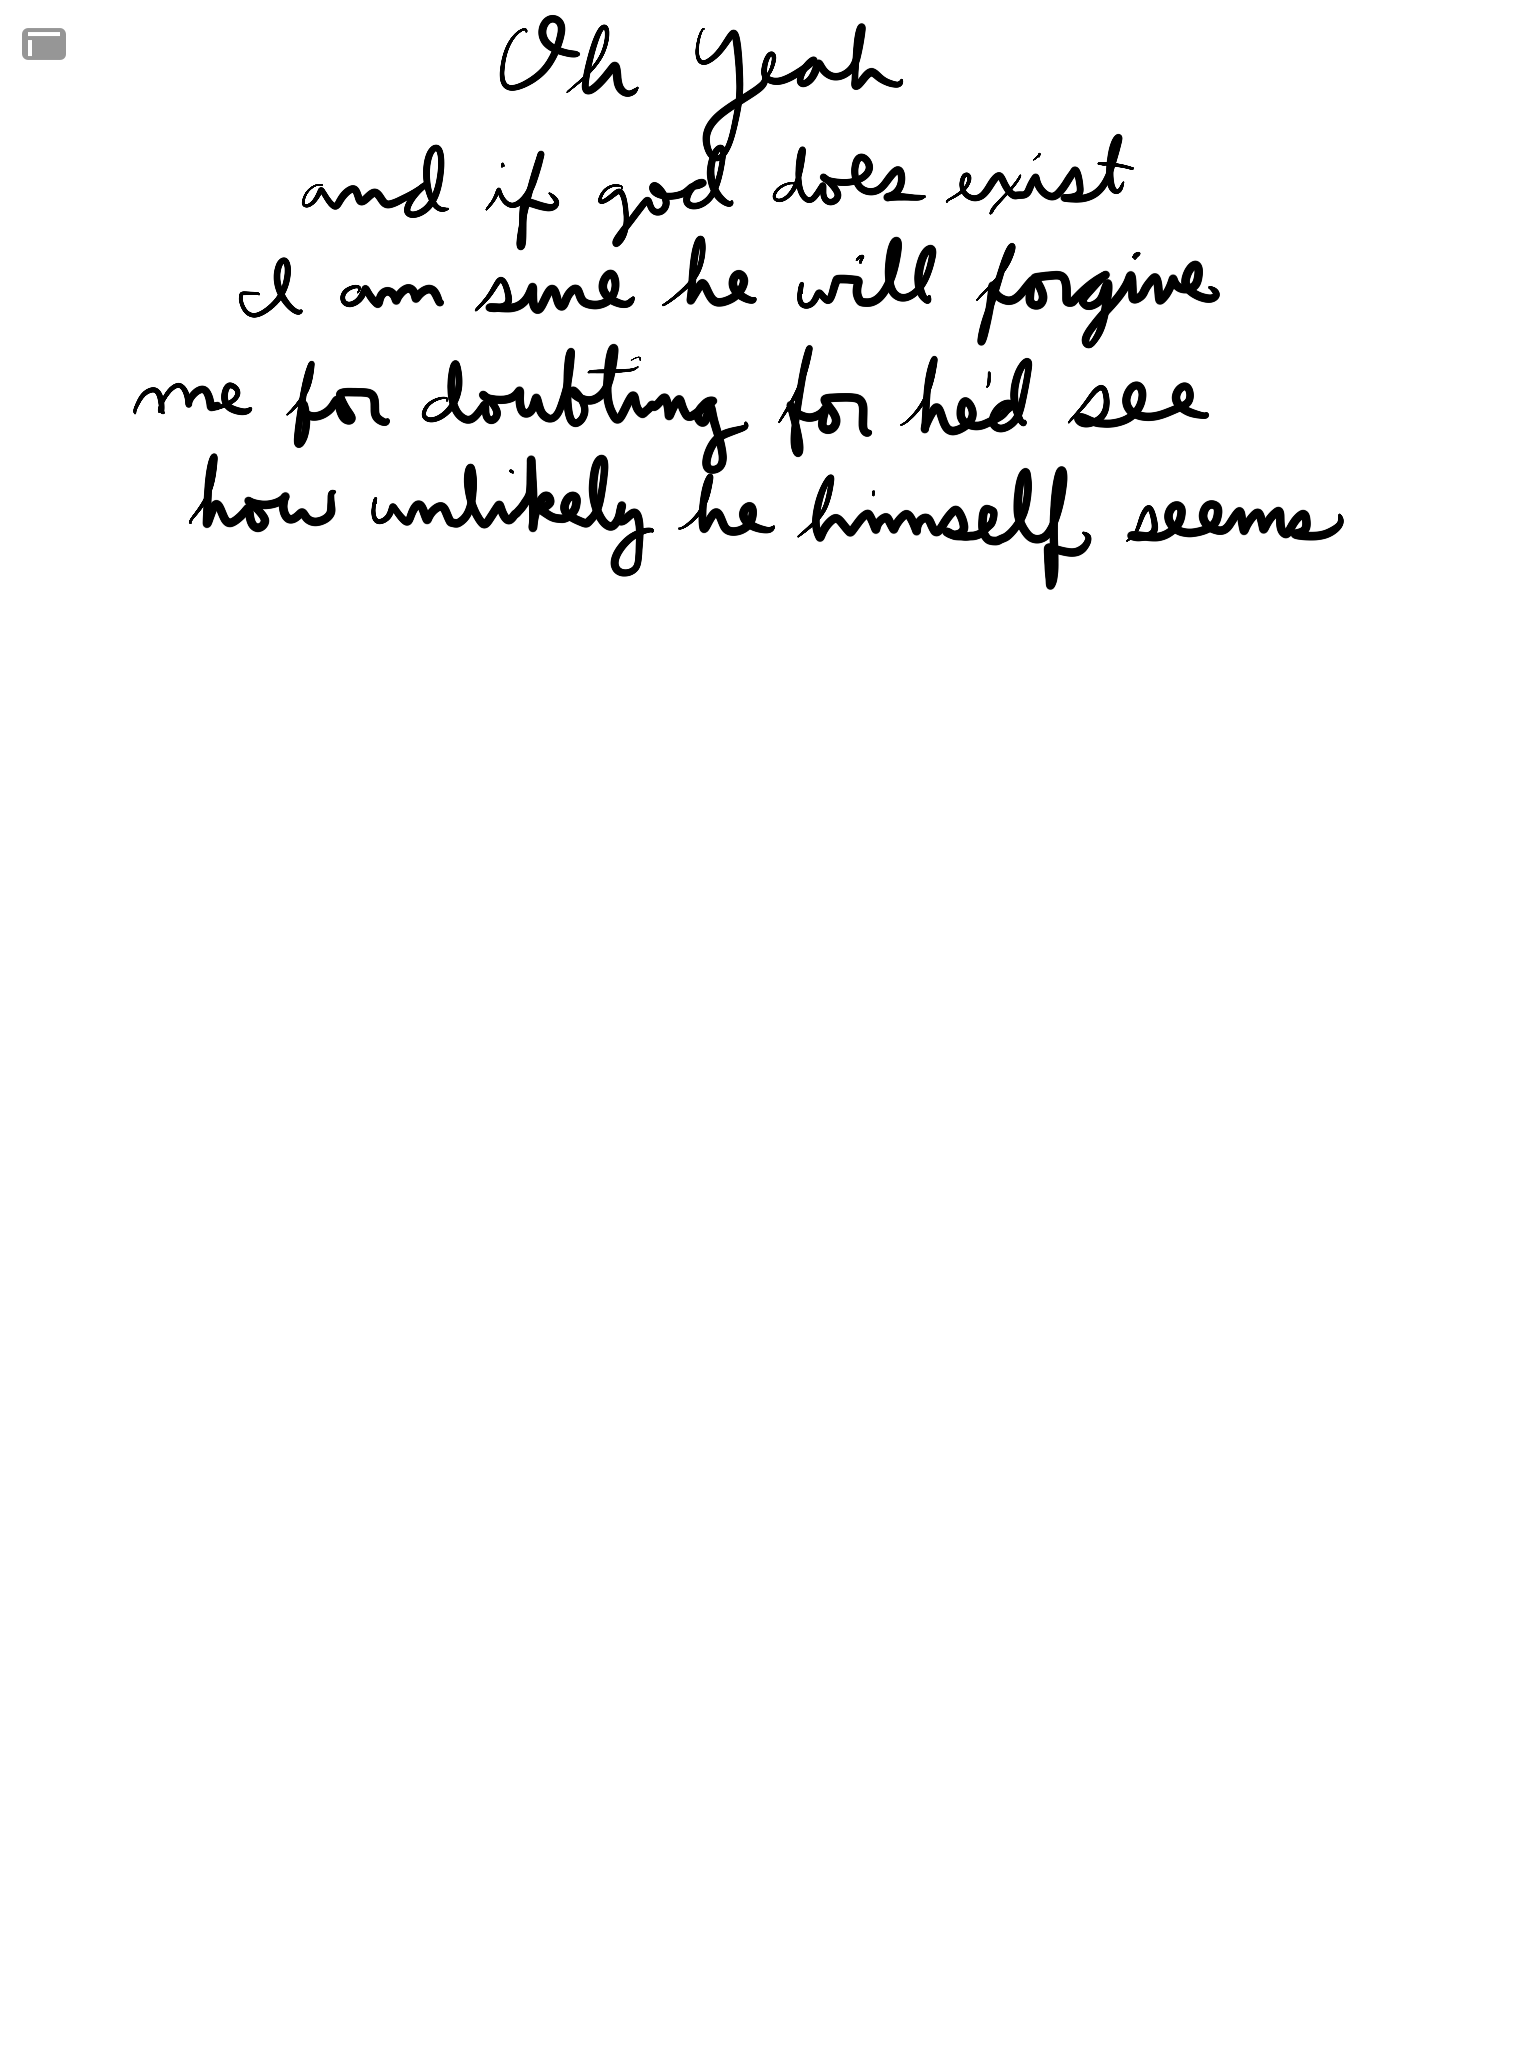 Oh Yeah
and if god does exist
I am sure he will forgive
me for doubting for he'd see
how unlikely he himself seems